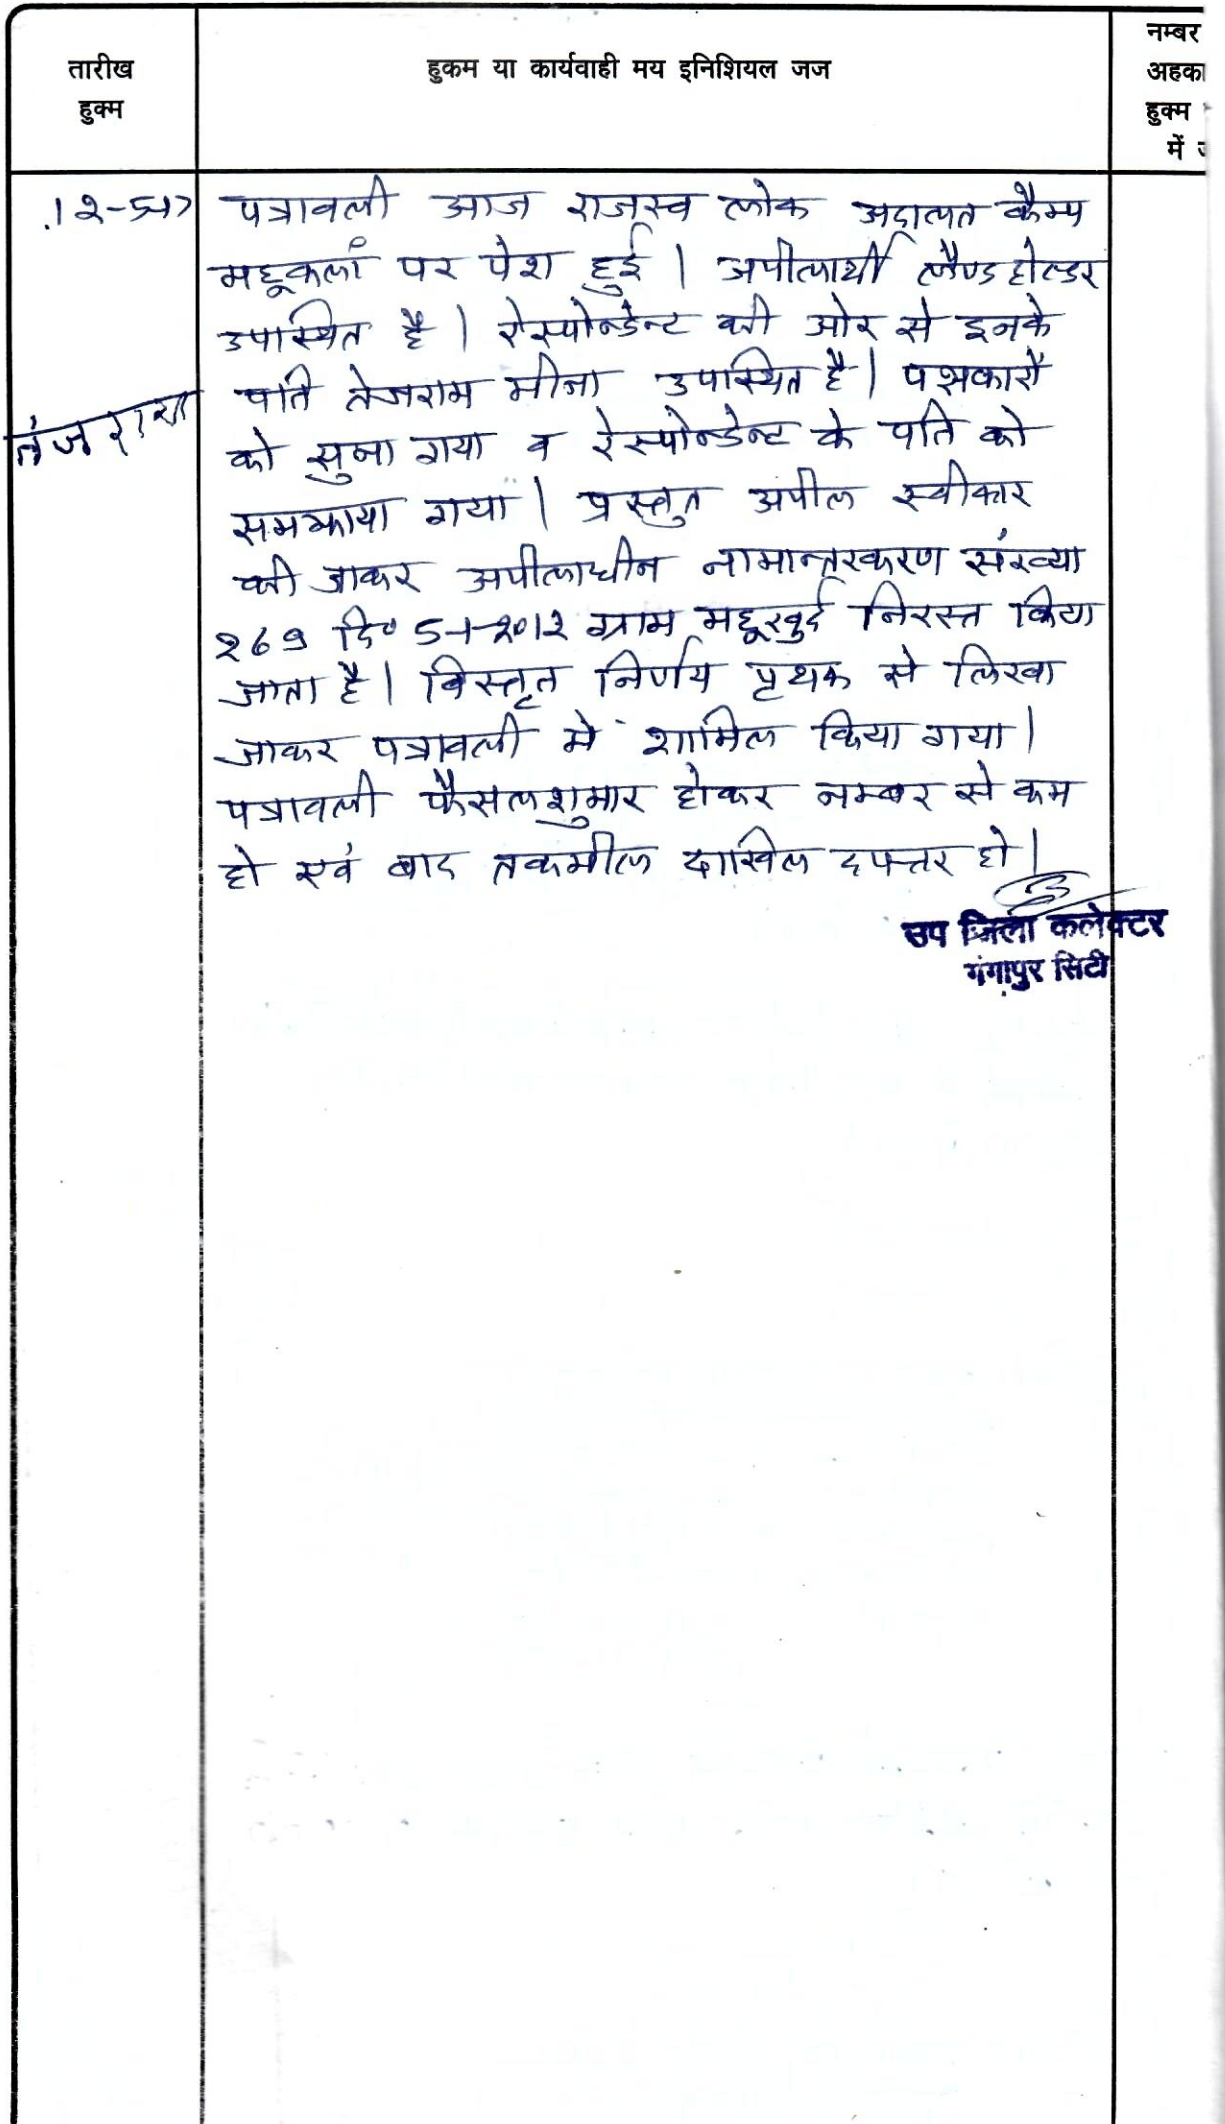 तारीख
हुक्म
हुकम या कार्यवाही मय इनिशियल जज
नम्बर
अहका
हुक्म
में
पत्रावली आज राजस्व लोक अदालत कैम्प
महूकलां पर पेश हुई। अपीलार्थी लैण्ड होल्डर
उपस्थित है। रेस्पोन्डेन्ट की ओर से इनके
पति तेजराम मीना उपस्थित है। पक्षकारों
तेजराम
को सुना गया व रेस्पोन्डेन्ट के पति को
समझाया गया। प्रस्तुत अपील स्वीकार
की जाकर अपीलाधीन नामान्तरकरण संख्या
269 दि० 5-1-2012 ग्राम महूखुर्द निरस्त किया
जाता है। विस्तृत निर्णय पृथक से लिखा
जाकर पत्रावली में शामिल किया गया।
पत्रावली फैसलशुमार होकर नम्बर से कम
हो एवं बाद तकमील दाखिल दफ्तर हो।
उप जिला कलेक्टर
गंगापुर सिटी